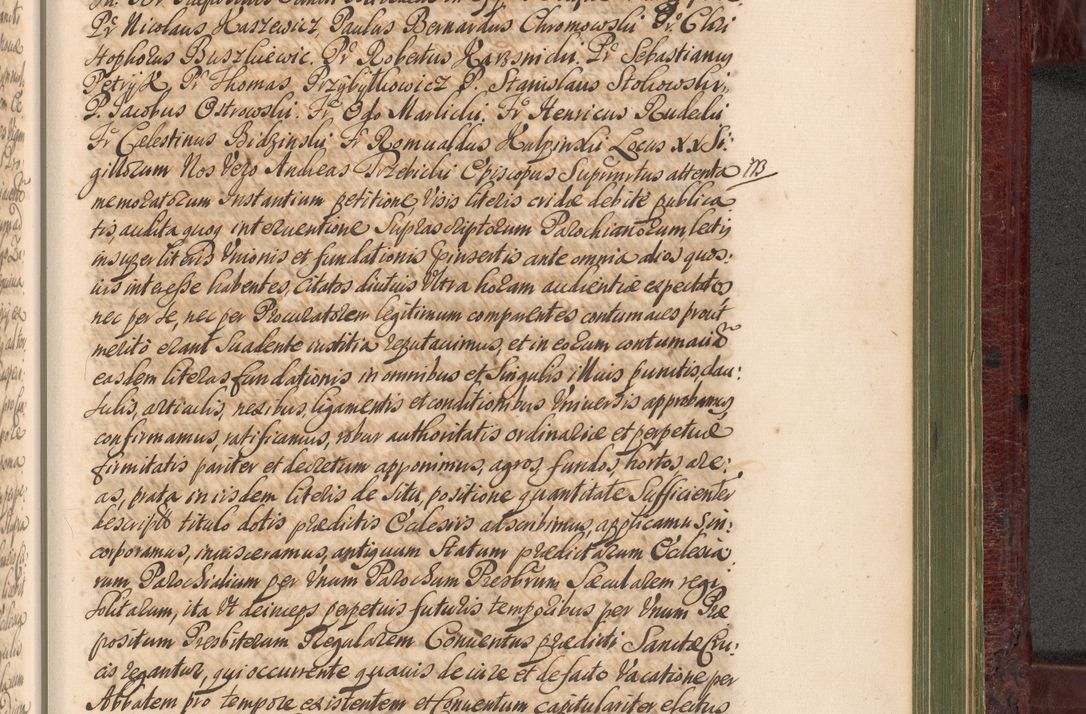 Pr. Nicolaus Kaszewicz, Paulus Bernardus Chromowski Pr. Chri
stophorus Buszkiewic. Pr. Robertus Karsnicki. Pr. Sebastianus
Petryk, Pr. Thomas, Przybytkowicz P. Stanislaus Stokowski,
P. Jacobus Ostrowski. Fr. Odo Marlicki. Fr. Henricus Rudelii
Fr. Celestinus Bidzinski, Fr. Romualdus Kulpinski Locus XX Si:
gillorum Nos Vero Andreas Trzebicki Episcopus Supranotus attenta
173
memoratorum Instantium petitione, Visis literis cridae debite publica
tis, audita quoq interuentione Suprascriptorum Parochianorum lectis
insuper literis Unionis et fundationis Ihinsertis ante omnia alios quos:
uis interesse habentes, Citatos diutius Ultra horam audientiae expectatos
nec per se, nec per Procuratorem legitimum comparentes contumaces prout
merito erant Suadente iustitia reputauimus, et in eorum contumaciam
easdem literas fundationis in omnibus et Singulis illius punctis, clau:
sulis, articulis, nexibus, ligamentis et conditionibus Universis approbamus,
confirmamus, ratificamus, robur authoritatis ordinariae et perpetuae
firmitatis pariter et decretum apponimus, agros, fundos, hortos, are:
as, prata in iisdem literis de situ, positione quantitate Sufficienter
descripto titulo dotis praedictis Ecclesiis adscribimus, applicamus in:
corporamus, inuisceramus, antiquum Statum praedictarum Ecclesia
rum Parochialium per Unum Parochum Presbrum Saecularem regi
solitarum, ita Ut deinceps perpetuis futuris temporibus per Unum Prae
positum Presbiterum Regularem Conuentus praedicti Sanctae Cru:
cis regantur, qui occurrente quauis de iure et de facto Vacatione per
Abbatem pro tempore existentem et Conuentum capitulariter electus